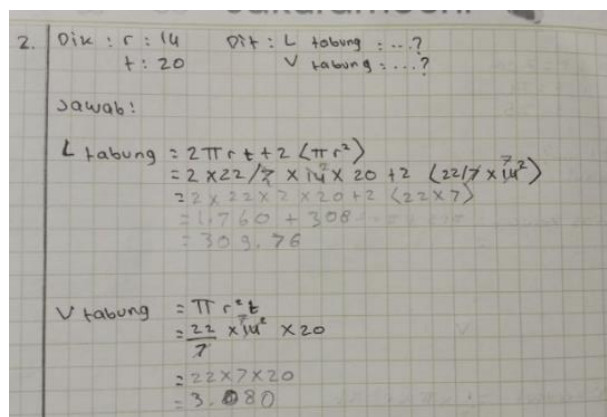 2. Dik : r : 14 Dit : L tabung : ...?
t : 20 V tabung : ...?
Jawab :
L tabung = 2πrt + 2 (πr²)
= 2 × 22/7 × 14² × 20 + 2 (22/7 × 14²)
= 2 × 22 × 2 × 20 + 2 (22 × 7)
= 1.760 + 308
= 309.76
V tabung = πr²t
= 22/7 × 14² × 20
= 22 × 7 × 20
= 3.080